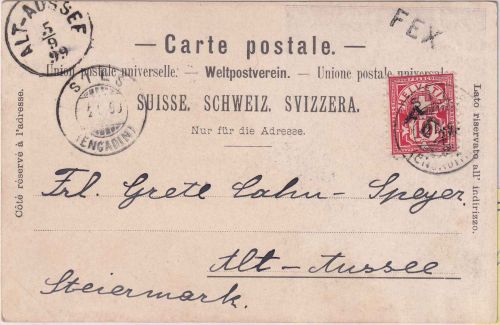 ALT-AUSSEE
5/9
99
FEX
Carte postale.
Union postale universelle. - Weltpostverein. - Unione postale universale
SUISSE. SCHWEIZ. SVIZZERA.
Nur für die Adresse.
Côté réservé à l'adresse.
Lato riservato all' indirizzo.
HELVETIA
10
(ENGADIN)
Frl. Grete Cahn-Speyer,
Alt-Aussee
Steiermark.